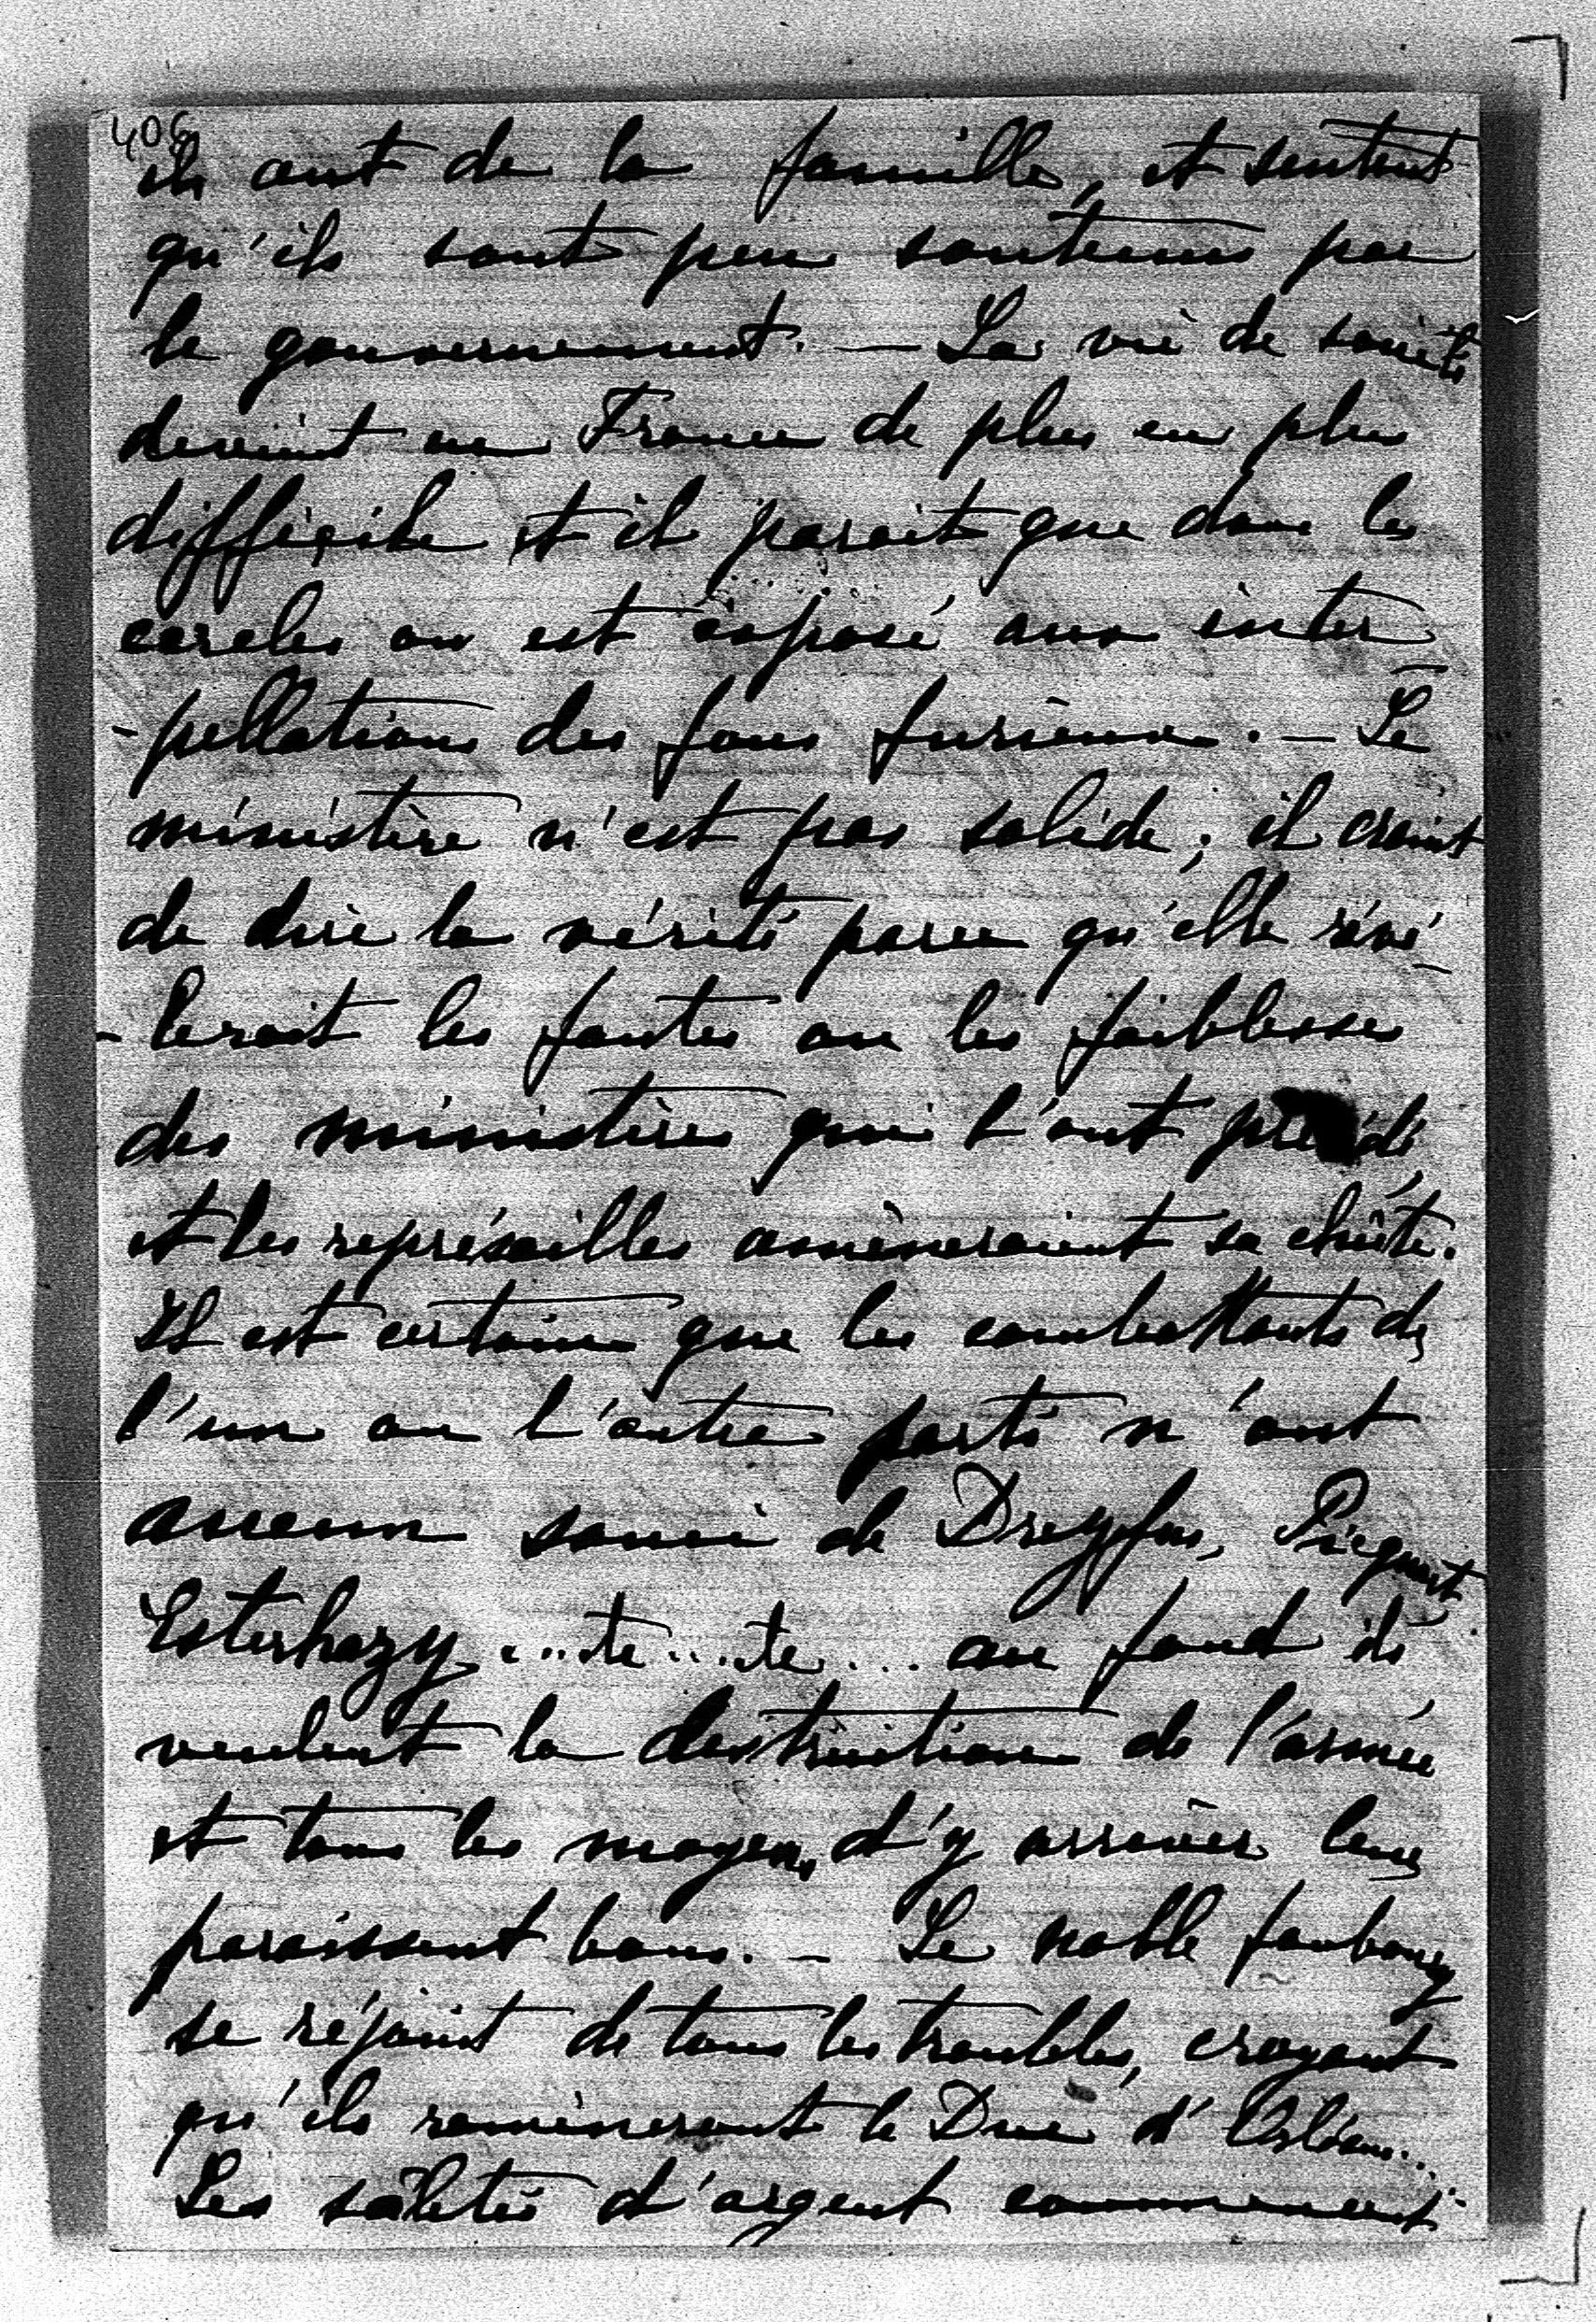 406
ils ont de la famille, et sentent
qu'ils sont peu soutenus par
le gouvernement. — La vie de société
devient en France de plus en plus
difficile et il parait que dans les
cercles on est exposé aux inter
-pellations des fous furieux. — Le
ministère n'est pas solide; il craint
de dire la vérité parce qu'elle révé-
-lerait les fautes ou les faiblesses
des ministères qui l'ont précédé,
et les représailles amèneraient sa chûte.
Il est certain que les combattants de
l'un ou l'autre parti n'ont
aucun souci de Dreyfus, Picquart
Esterhazy ... te ... te ... au fond ils
veulent la destruction de l'armée
et tous les moyens d'y arriver leur
paraissent bons. — Le noble faubourg
se réjouit de tous les troubles, croyant
qu'ils ramèneront le Duc d'Orléans...
Les sâletés d'argent commencent